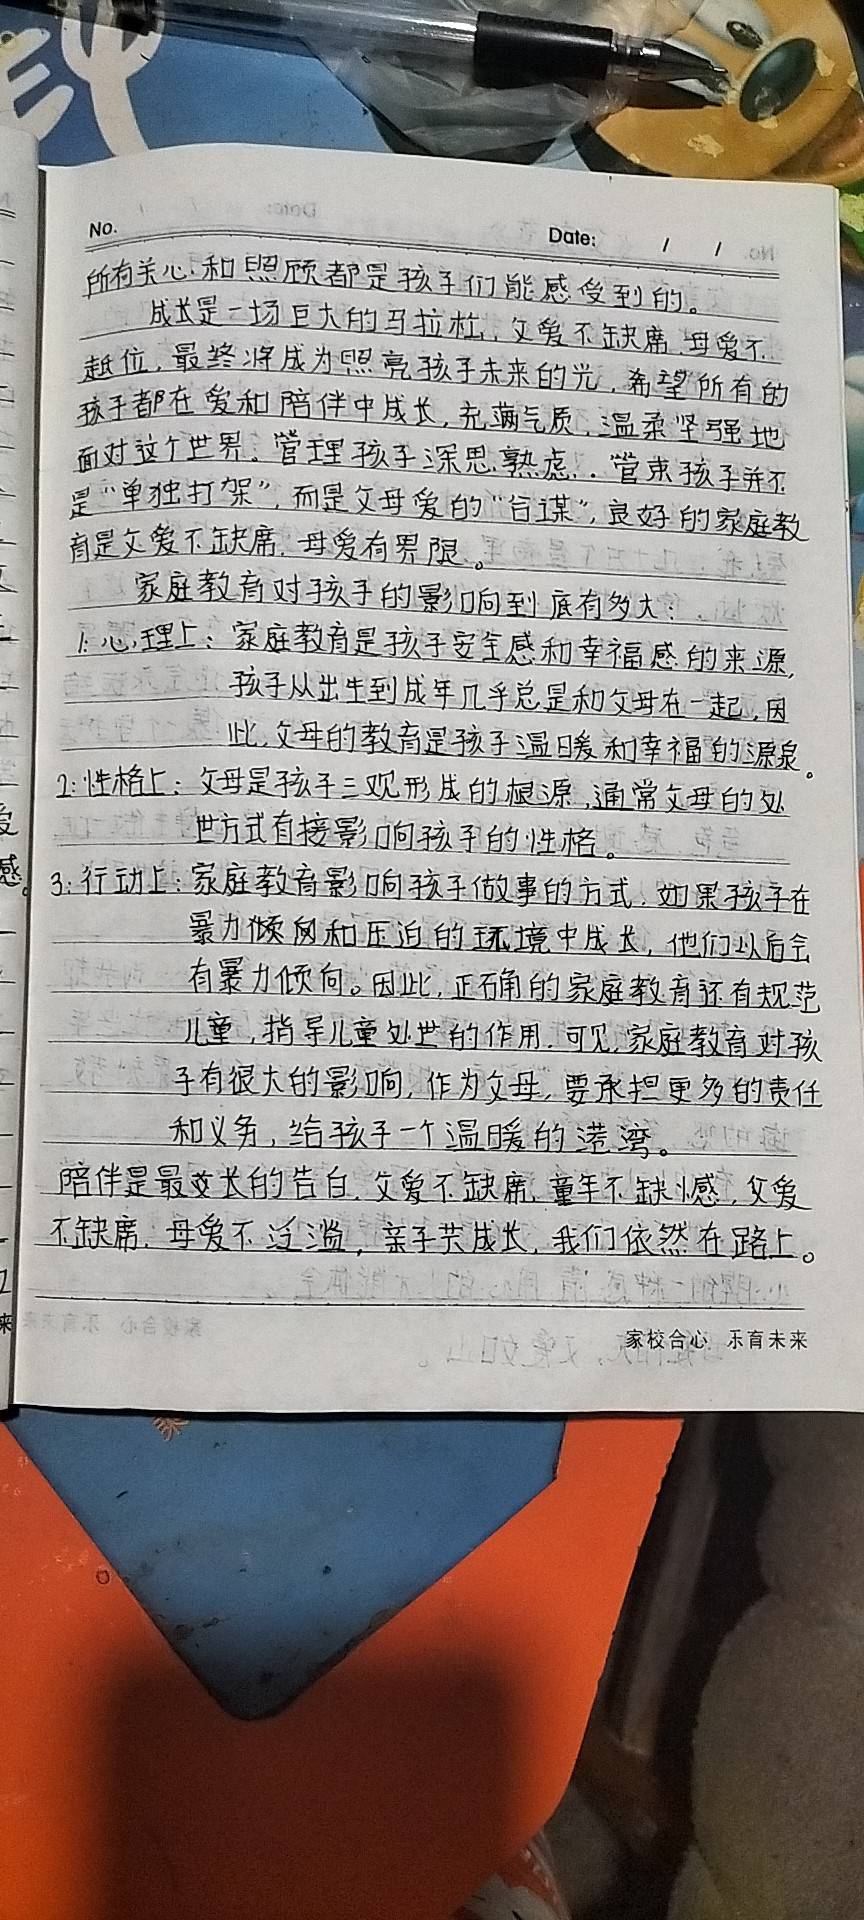 No. Date: / /
所有关心和照顾都是孩子们能感受到的。
成长是一场巨大的马拉松,父爱不缺席,母爱不
越位,最终将成为照亮孩子未来的光,希望所有的
孩子都在爱和陪伴中成长,充满气质,温柔坚强地
面对这个世界。管理孩子深思熟虑..管束孩子并不
是“单独打架”,而是父母爱的“合谋”,良好的家庭教
育是父爱不缺席.母爱有界限。
家庭教育对孩子的影响到底有多大:
1:心理上:家庭教育是孩子安全感和幸福感的来源,
孩子从出生到成年几乎总是和父母在一起,因
此,父母的教育是孩子温暖和幸福的源泉。
2:性格上:父母是孩子三观形成的根源,通常父母的处
世方式直接影响孩子的性格。
3:行动上:家庭教育影响孩子做事的方式.如果孩子在
暴力倾向和压迫的环境中成长,他们以后会
有暴力倾向。因此,正确的家庭教育还有规范
儿童,指导儿童处世的作用.可见,家庭教育对孩
子有很大的影响,作为父母,要承担更多的责任
和义务,给孩子一个温暖的港湾。
陪伴是最长的告白.父爱不缺席,童年不缺憾,父爱
不缺席.母爱不泛滥,亲子共成长,我们依然在路上。
家校合心 乐育未来
爱
感。
来